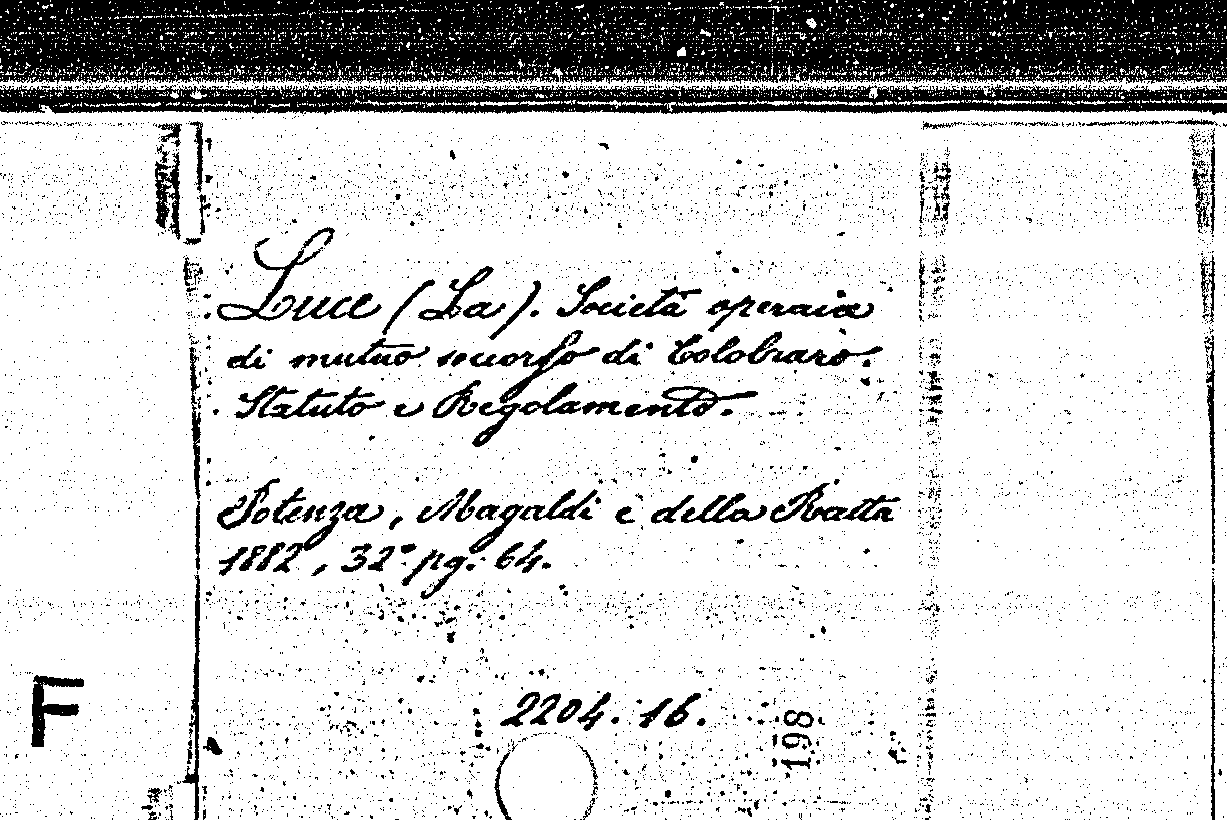 Luce (La). Società operaia
di mutuo soccorso di Colobraro.
Statuto e Regolamento.
Potenza, Magaldi e della Ratta
1882, 32° pg. 64.
F
2204. 16.
198